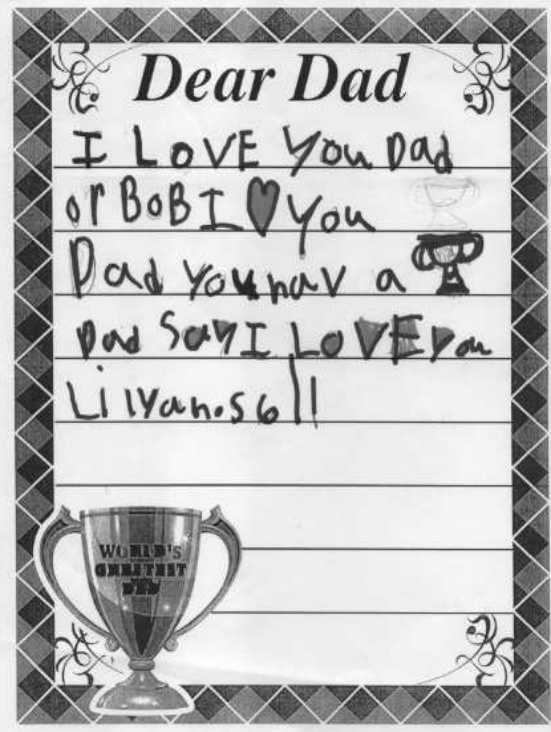 Dear Dad
I LOVE You Dad
or BoB I ♥ You
Dad You hav a
Dad Say I LOVE You
Lilyan.S 6
WORLD'S
GREATEST
DAD